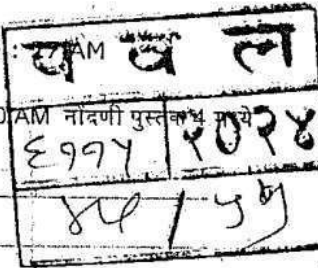 : AM
व व ल
AM नोंदणी पुस्तक 4 मध्ये
६११५ २०२४
४५ / ५५